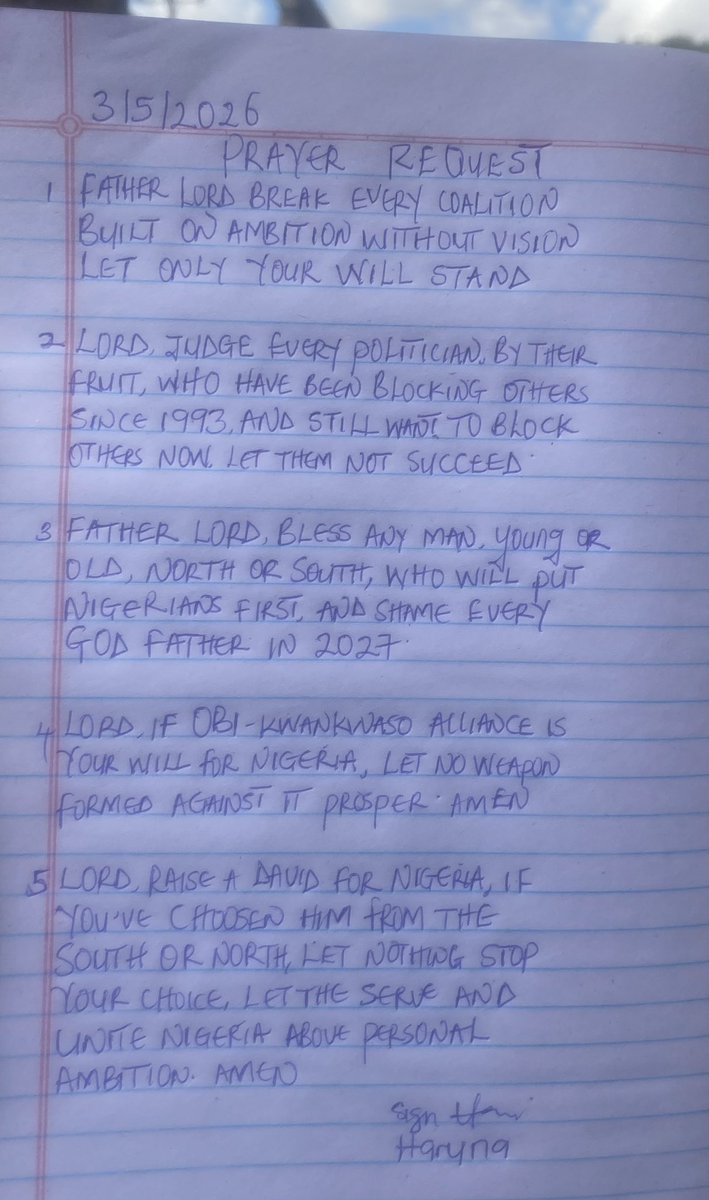 3/5/2026
PRAYER REQUEST
1 FATHER LORD BREAK EVERY COALITION
BUILT ON AMBITION WITHOUT VISION
LET ONLY YOUR WILL STAND
2 LORD, JUDGE EVERY POLITICIAN, BY THEIR
FRUIT, WHO HAVE BEEN BLOCKING OTHERS
SINCE 1993, AND STILL WANT TO BLOCK
OTHERS NOW. LET THEM NOT SUCCEED.
3 FATHER LORD, BLESS ANY MAN, Young OR
OLD, NORTH OR SOUTH, WHO WILL PUT
NIGERIANS FIRST, AND SHAME EVERY
GOD FATHER IN 2027.
4 LORD, IF OBI-KWANKWASO ALLIANCE IS
YOUR WILL FOR NIGERIA, LET NO WEAPON
FORMED AGAINST IT PROSPER. AMEN
5 LORD, RAISE A DAVID FOR NIGERIA, IF
YOU'VE CHOOSEN HIM FROM THE
SOUTH OR NORTH, LET NOTHING STOP
YOUR CHOICE, LET THE SERVE AND
UNITE NIGERIA ABOVE PERSONAL
AMBITION. AMEN
Sign
Haruna